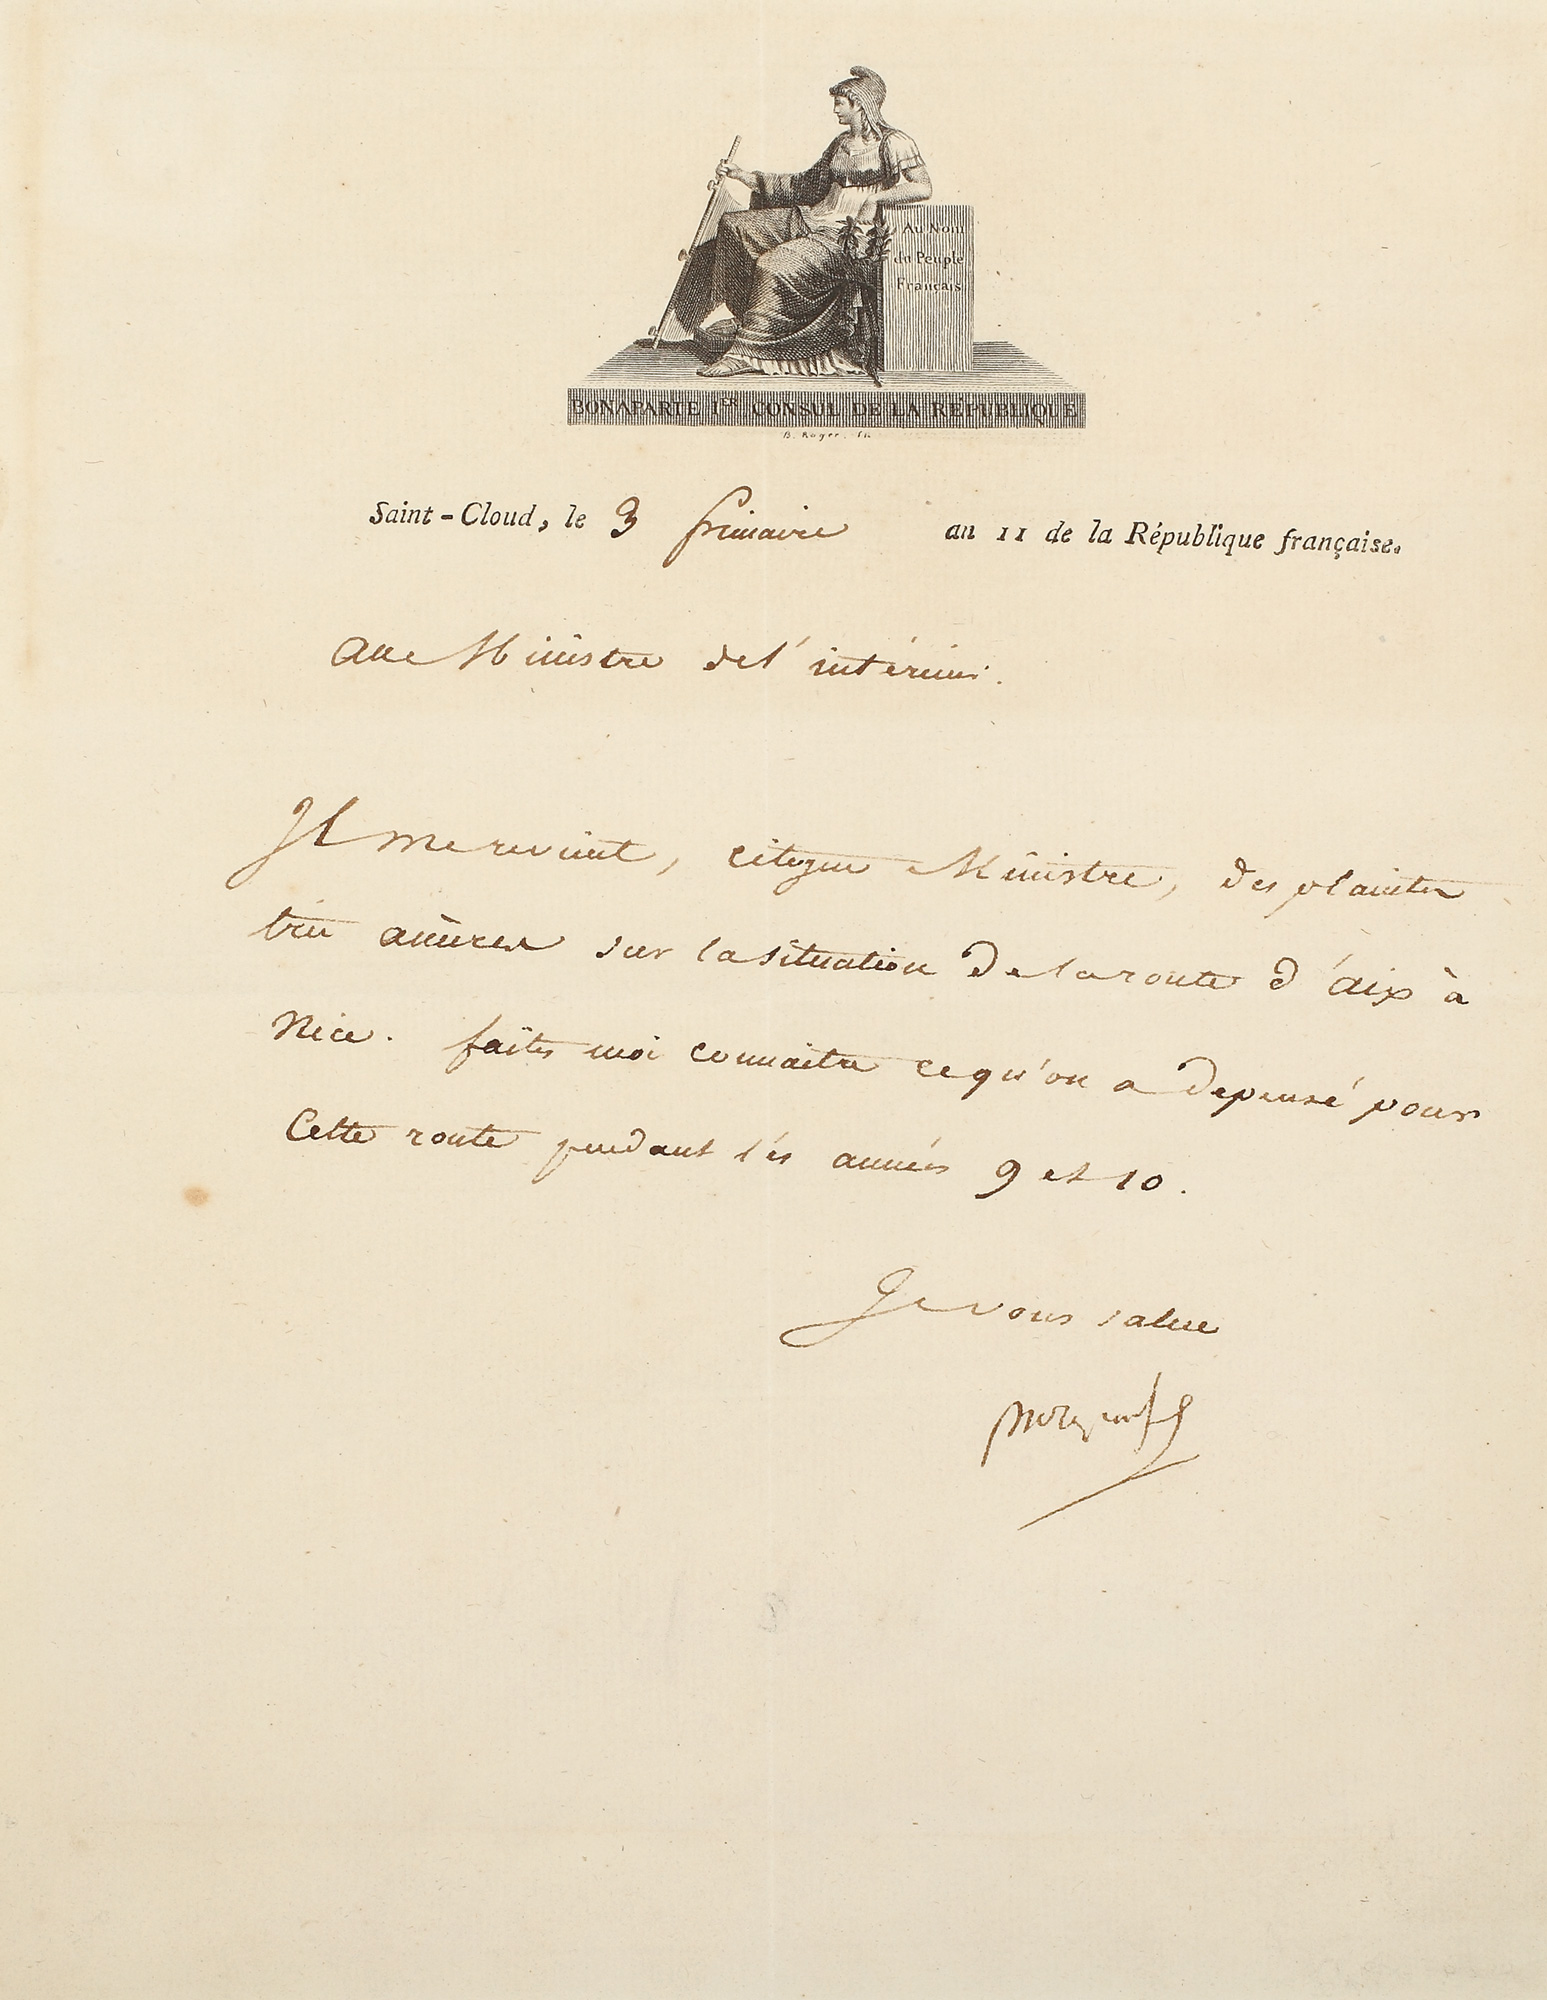 Au Nom
du Peuple
Français
BONAPARTE 1ER CONSUL DE LA RÉPUBLIQUE
B. Roger. fit
Saint-Cloud, le 3 frimaire an 11 de la République française.
Au Ministre de l'intérieur.
Il me revient, citoyen Ministre, des plaintes
très amères sur la situation de la route d'aix à
Nice. faites moi connaitre ce qu'on a depensé pour
Cette route pendant lés années 9 et 10.
Je vous salue